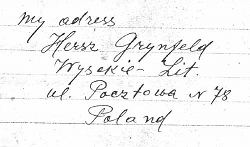 my adress
Hersz Grynfeld
Wysokie-Lit.
ul. Pocztowa N 78
Poland